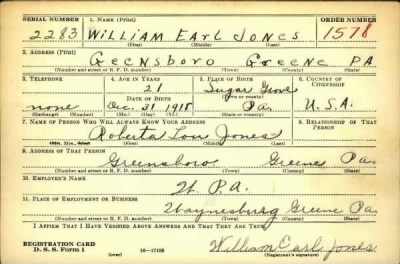 SERIAL NUMBER 1. NAME (Print) ORDER NUMBER
2283 William Earl Jones 1578
(First) (Middle) (Last)
2. ADDRESS (Print)
Geensboro Greene PA
(Number and street or R. F. D. number) (Town) (County) (State)
3. TELEPHONE 4. AGE IN YEARS 5. PLACE OF BIRTH 6. COUNTRY OF CITIZENSHIP
21 Sugar Grove
DATE OF BIRTH (Town or county)
none Dec. 31 1918 Pa. U.S.A.
(Exchange) (Number) (Mo.) (Day) (Yr.) (State or country)
7. NAME OF PERSON WHO WILL ALWAYS KNOW YOUR ADDRESS 8. RELATIONSHIP OF THAT PERSON
Roberta Lou Jones
(First) (Middle) (Last)
9. ADDRESS OF THAT PERSON
Greensboro Greene Pa.
(Number and street or R. F. D. number) (Town) (County) (State)
10. EMPLOYER'S NAME
W. P.A.
11. PLACE OF EMPLOYMENT OR BUSINESS
Waynesburg Greene Pa
(Number and street or R. F. D. number) (Town) (County) (State)
I AFFIRM THAT I HAVE VERIFIED ABOVE ANSWERS AND THAT THEY ARE TRUE.
REGISTRATION CARD William Earl Jones
D. S. S. Form 1 (over) (Registrant's signature)